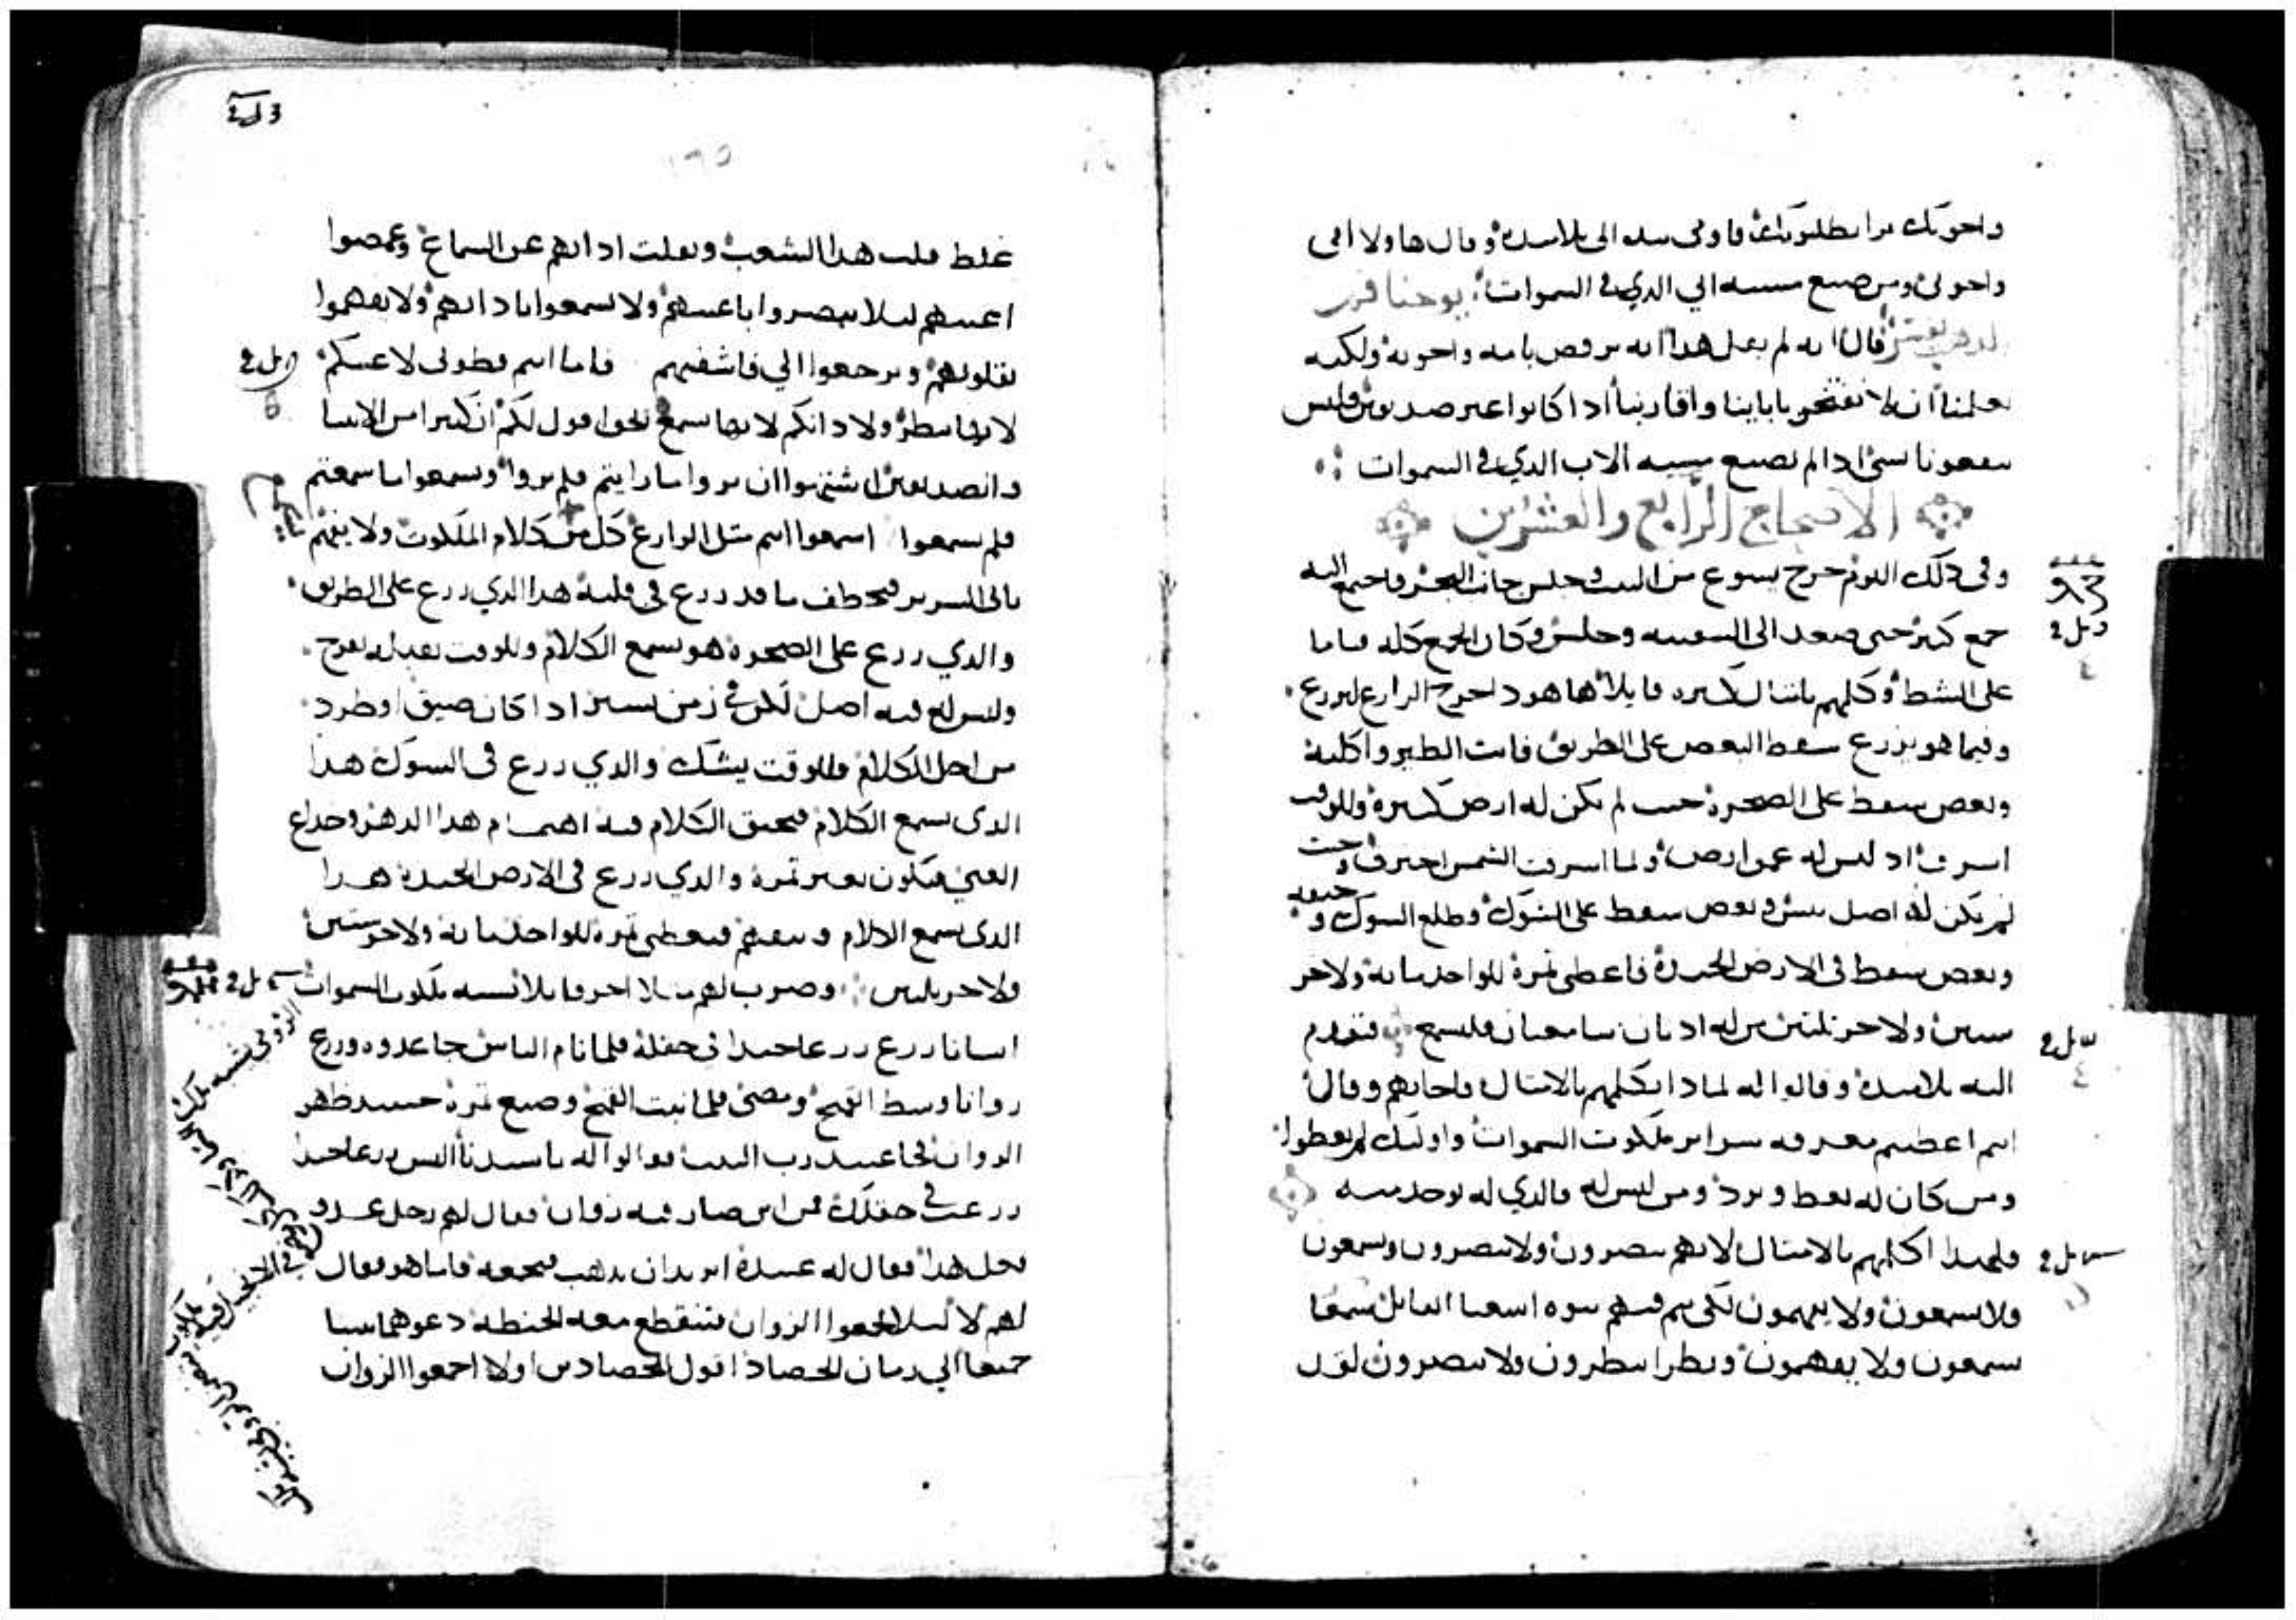 واخوتك برا يطلبونك فاومى بيده الى تلاميذه وقال هاولا امى
واخوتى ومن صنع مسيه ابي الذي في السموات يوحنا فم
الذهب يفسر قال انه لم يقل هذا انه يرفض بامه واخوته ولكنه
يعلمنا ان لا نفتخر بابائنا واقاربنا اذا كانوا غير صديقين فليس
ينفعونا بشى اذا لم نصنع مسيه الاب الذي في السموات
الاصحاح الرابع والعشرين
وفى ذلك اليوم خرج يسوع من البيت وجلس جانب البحر فاجتمع اليه
جمع كبير حتى صعد الى السفينه وجلس وكان الجمع كله قياما
على الشط وكلمهم بامثال كثيره قايلا ها هوذا خرج الزارع ليزرع
وفيما هو يزرع سقط البعض على الطريق فاتت الطير واكلته
وبعض سقط على الصخرة حيث لم يكن له ارض كثيرة وللوقت
اشرق اذ ليس له عمق ارض ولما اشرقت الشمس احترق وحيث
لم يكن له اصل يبس وبعض سقط على الشوك وطلع الشوك وخنقه
وبعض سقط في الارض الجيدة فاعطى ثمرة للواحد مايه ولاخر
ستين ولاخر ثلثين من له اذنان سامعتان فليسمع فتقدم
اليه تلاميذه وقالوا له لماذا تكلمهم بالامثال فاجابهم وقال
انتم اعطيتم معرفه سراير ملكوت السموات واوليك لم يعطوا
ومن كان له يعط ويزد ومن ليس له فالذي له يوخذ منه
فلهذا اكلمهم بالامثال لانهم يبصرون ولا يبصرون ويسمعون
ولا يسمعون ولا يفهمون لكى يتم فيهم نبوه اشعيا القايل سمعا
يسمعون ولا يفهمون ونظرا ينظرون ولا يبصرون لقد
١٦٥
غلظ قلب هذا الشعب وثقلت اذانهم عن السماع وغمضوا
اعينهم ليلا يبصروا باعينهم ولا يسمعوا باذانهم ولا يفهموا
بقلوبهم ويرجعوا الي فاشفيهم فاما انتم فطوبى لاعينكم
لانها تنظر ولاذانكم لانها تسمع الحق اقول لكم ان كثيرا من الانبيا
والصديقين اشتهوا ان يروا ما رايتم فلم يروا ويسمعوا ما سمعتم
فلم يسمعوا اسمعوا انتم مثل الزارع كل من كلام الملكوت ولا يفهم
ياتى الشرير فيخطف ما قد زرع فى قلبه هذا الذي زرع على الطريق
والذي زرع على الصخرة هو يسمع الكلام وللوقت يقبله بفرح
وليس له فيه اصل لكن في زمن يسير اذا كان ضيق او طرد
من اجل الكلام فللوقت يشك والذي زرع فى الشوك هذا
الذى يسمع الكلام فيخنق الكلام فيه اهتمام هذا الدهر وخداع
الغنى فيكون بغير ثمرة والذي زرع فى الارض الجيدة هذا
الذى يسمع الكلام ويفهم فيعطى ثمرة للواحد مايه ولاخر ستين
ولاخر ثلثين وضرب لهم مثلا اخر قايلا تشبه ملكوت السموات
انسانا زرع زرعا جيدا في حقله فلما نام الناس جا عدوه وزرع
زوانا وسط القمح ومضى فلما نبت القمح وصنع ثمرة حينيذ ظهر
الزوان فجا عبيد رب البيت فقالوا له يا سيدنا اليس زرعا جيدا
زرعت في حقلك فمن اين صار فيه زوان فقال لهم رجل عدو
فعل هذا فقال له عبيده اتريد ان نذهب فنجمعه فاما هو فقال
لهم لا ليلا تجمعوا الزوان فتنقطع معه الحنطه دعوهما ينبتا
جميعا الي زمان الحصاد اقول للحصادين اولا اجمعوا الزوان